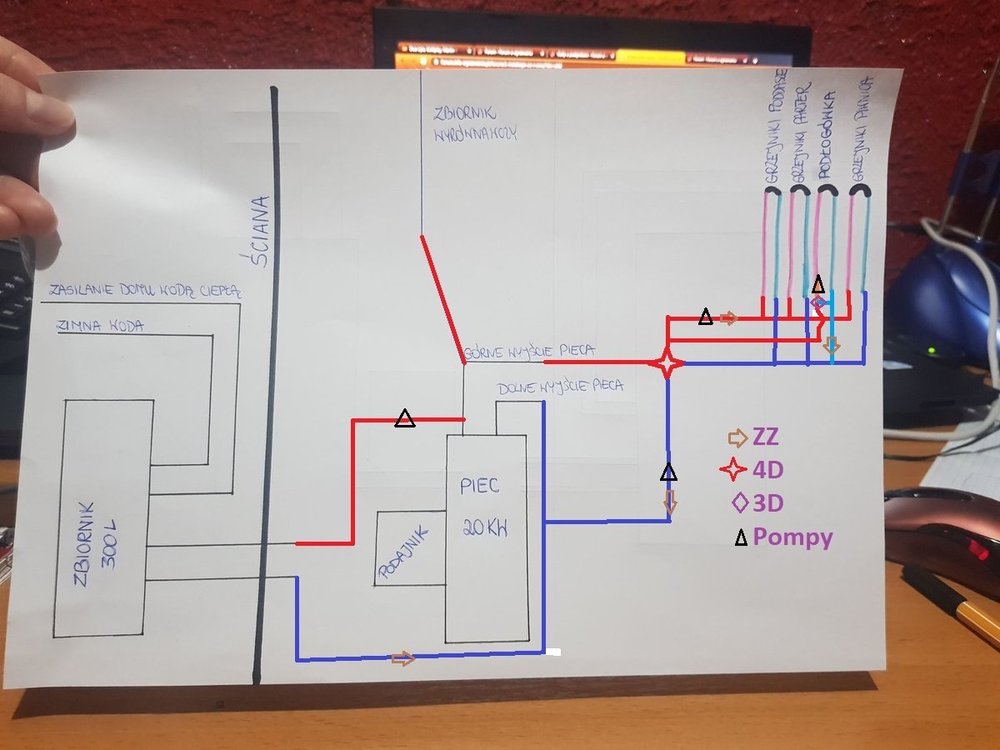 ZBIORNIK
WYRÓWNAWCZY
GRZEJNIKI PODDASZE
GRZEJNIKI PARTER
PODŁOGÓWKA
GRZEJNIKI PIWNICA
ŚCIANA
ZASILANIE DOMU WODĄ CIEPŁĄ
ZIMNA WODA
GÓRNE WYJŚCIE PIECA
DOLNE WYJŚCIE PIECA
ZBIORNIK
300L
PODAJNIK
PIEC
20KW
ZZ
4D
3D
Pompy